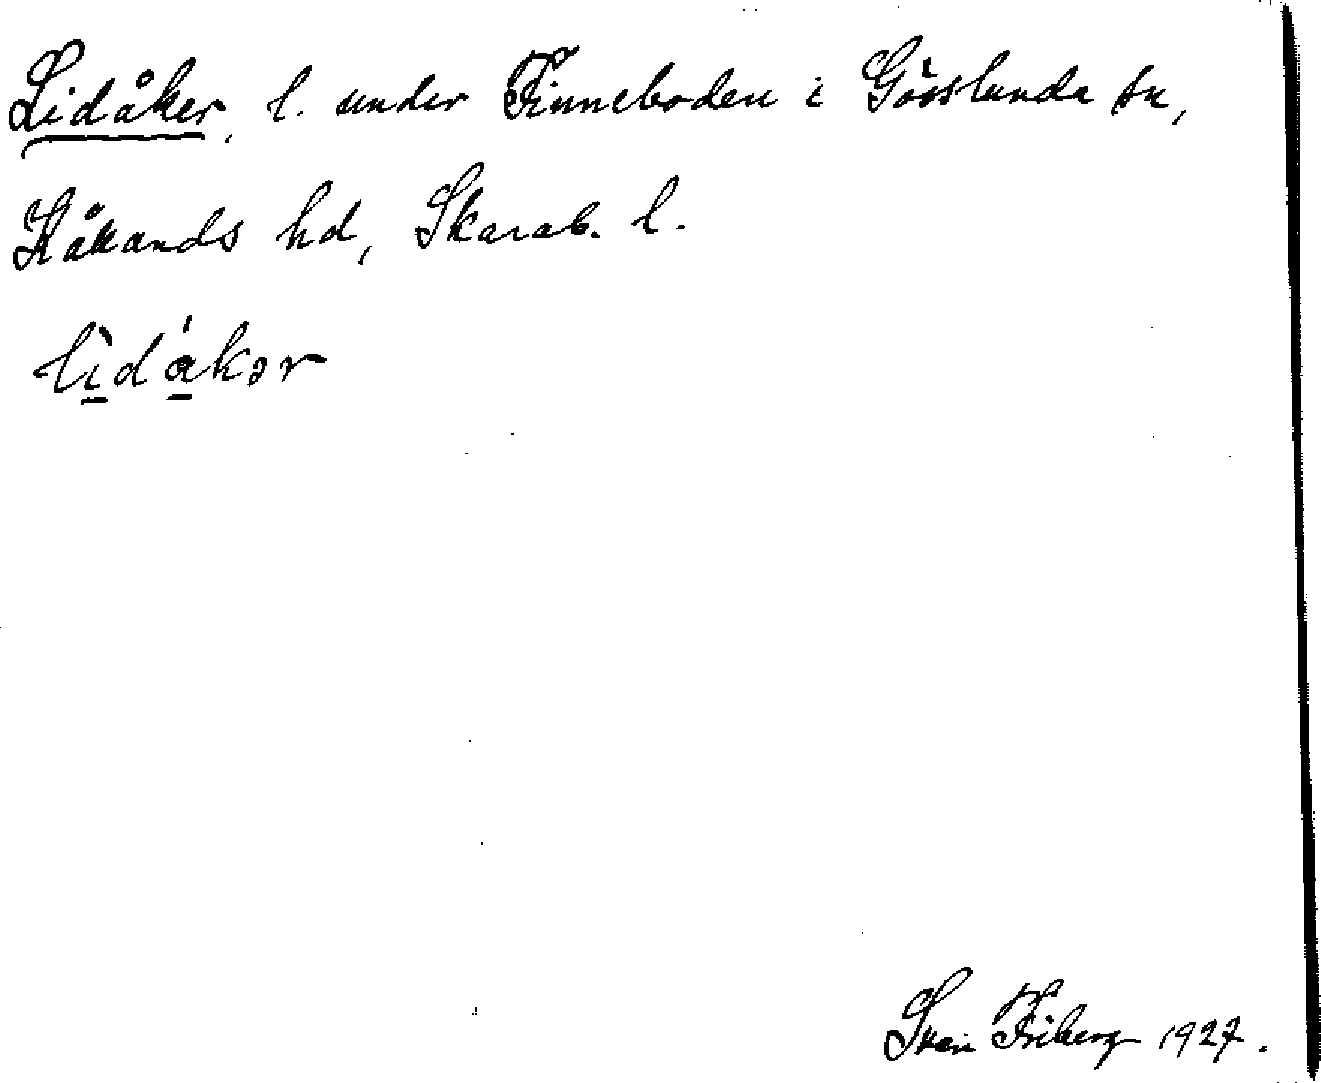 Lidåker, l. under Finneboden i Gösslunda sn,
Kåkands hd, Skarab. l.
lìdákər
Sven Friberg 1927.